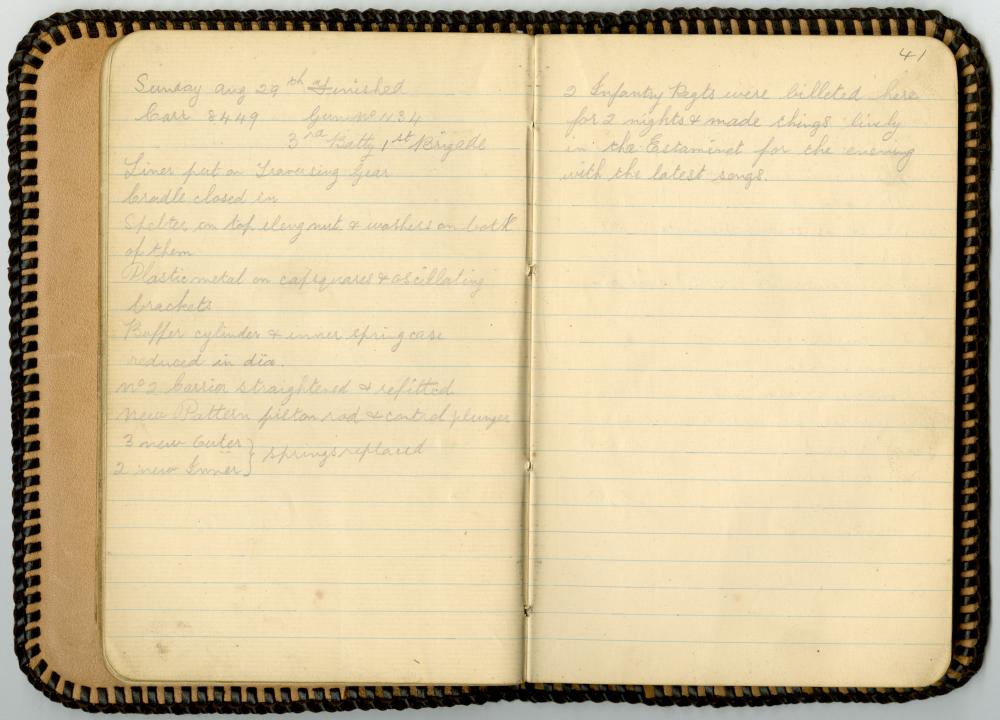 Sunday Aug 29th Finished
Carr 8449 Gun No 1134
3rd Batty 1st Brigade
Liner put on Traversing Gear
Cradle closed in
Spelter on top nut & washers on both
of them
Plastic metal on capsquares & oscillating
brackets
Buffer cylinder & inner spring case
reduced in dia.
No 2 Carrier straightened & refitted
New Pattern piston rod & control plunger
3 new Outer } springs replaced
2 new Inner
41
2 Infantry Regts were billeted here
for 2 nights & made things lively
in the Estaminet for the evening
with the latest songs.